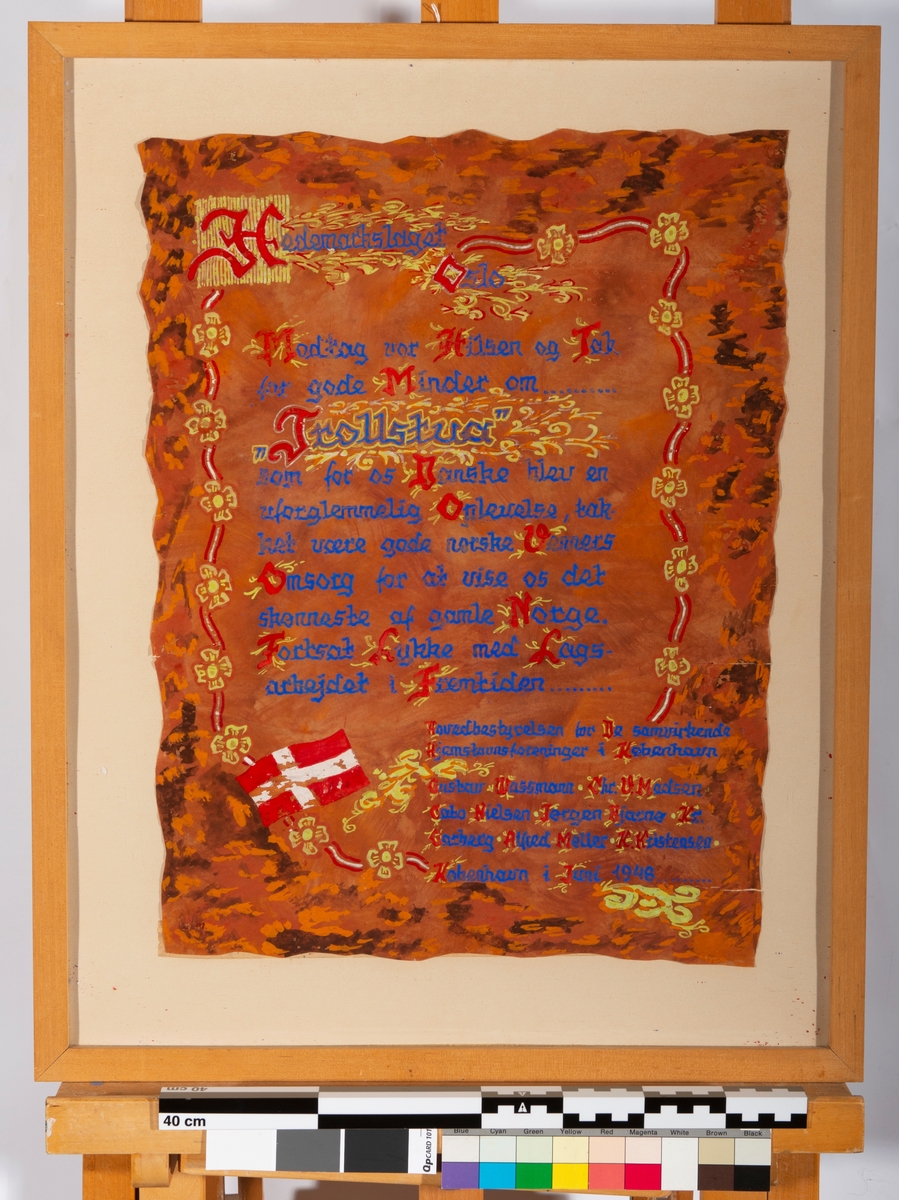 Hedemarkslaget
Oslo
Modtag vor Hilsen og Tak
for gode Minder om..........
„Trollstua"
som for os Danske blev en
uforglemmelig Oplevelse, tak
ket være gode norske Venners
Omsorg for at vise os det
skønneste af gamle Norge.
Fortsat Lykke med Lags-
arbejdet i Fremtiden.........
Hovedbestyrelsen for De samvirkende
Hjemstavnsforeninger i København
Gustav Wassmann · Chr. V. Madsen
Nielsen · Jørgen Bjarnø · Kr.
Alfred Møller · K. Kristensen ·
København i Juni 1948
40 cm
40 cm
A
QPCARD 101
Blue Cyan Green Yellow Red Magenta White Brown Black